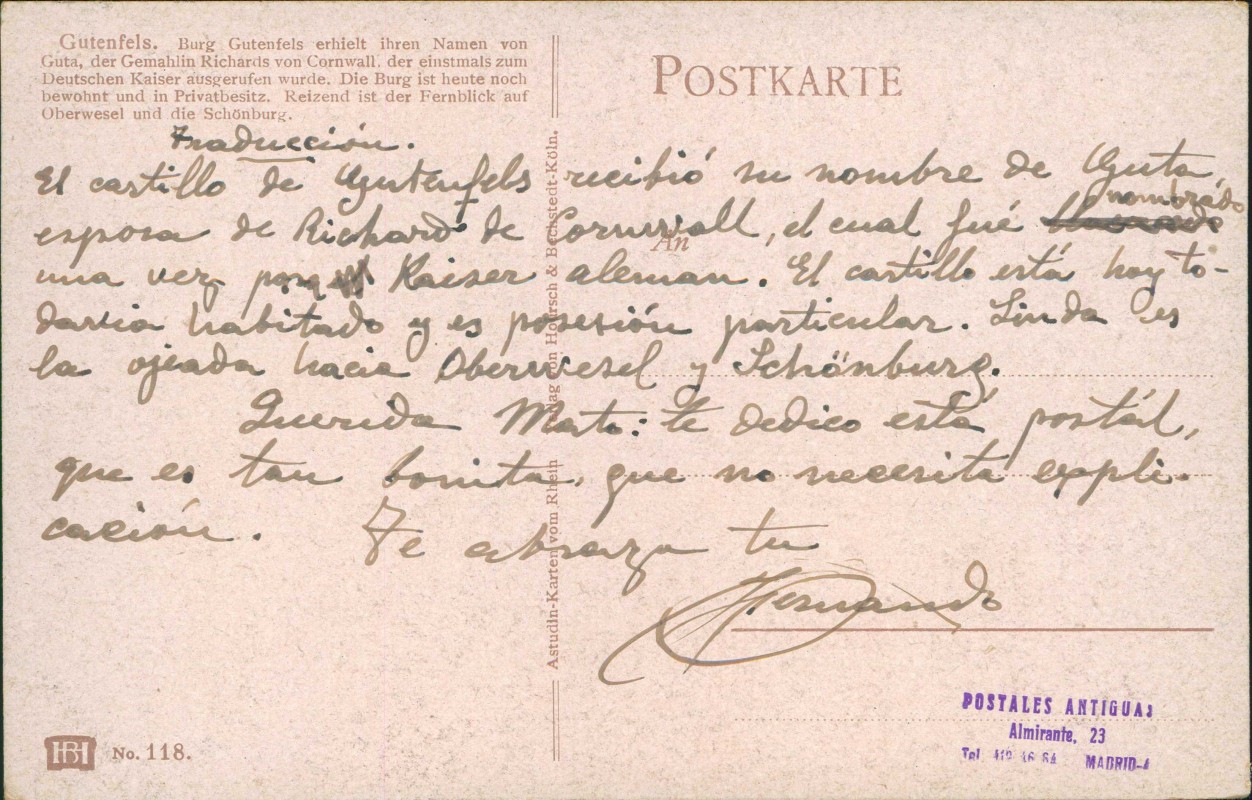 Gutenfels. Burg Gutenfels erhielt ihren Namen von
Guta, der Gemahlin Richards von Cornwall, der einstmals zum
Deutschen Kaiser ausgerufen wurde. Die Burg ist heute noch
bewohnt und in Privatbesitz. Reizend ist der Fernblick auf
Oberwesel und die Schönburg.
POSTKARTE
Traducción.
El castillo de Gutenfels recibió su nombre de Guta,
nombrado
esposa de Richard de Cornwall, el cual fué
An
una vez por Kaiser aleman. El castillo está hoy to-
davia habitado y es posesión particular. Linda es
la ojeada hacia Oberwesel y Schönburg.
Querida Mate: te dedico está postál,
que es tan bonita, que no necesita expli-
cación. Te abraza tu
Hernando
Astudin-Karten vom Rhein Verlag von Hoursch & Bechstedt-Köln.
HB No. 118.
POSTALES ANTIGUAS
Almirante, 23
Tel. MADRID-4